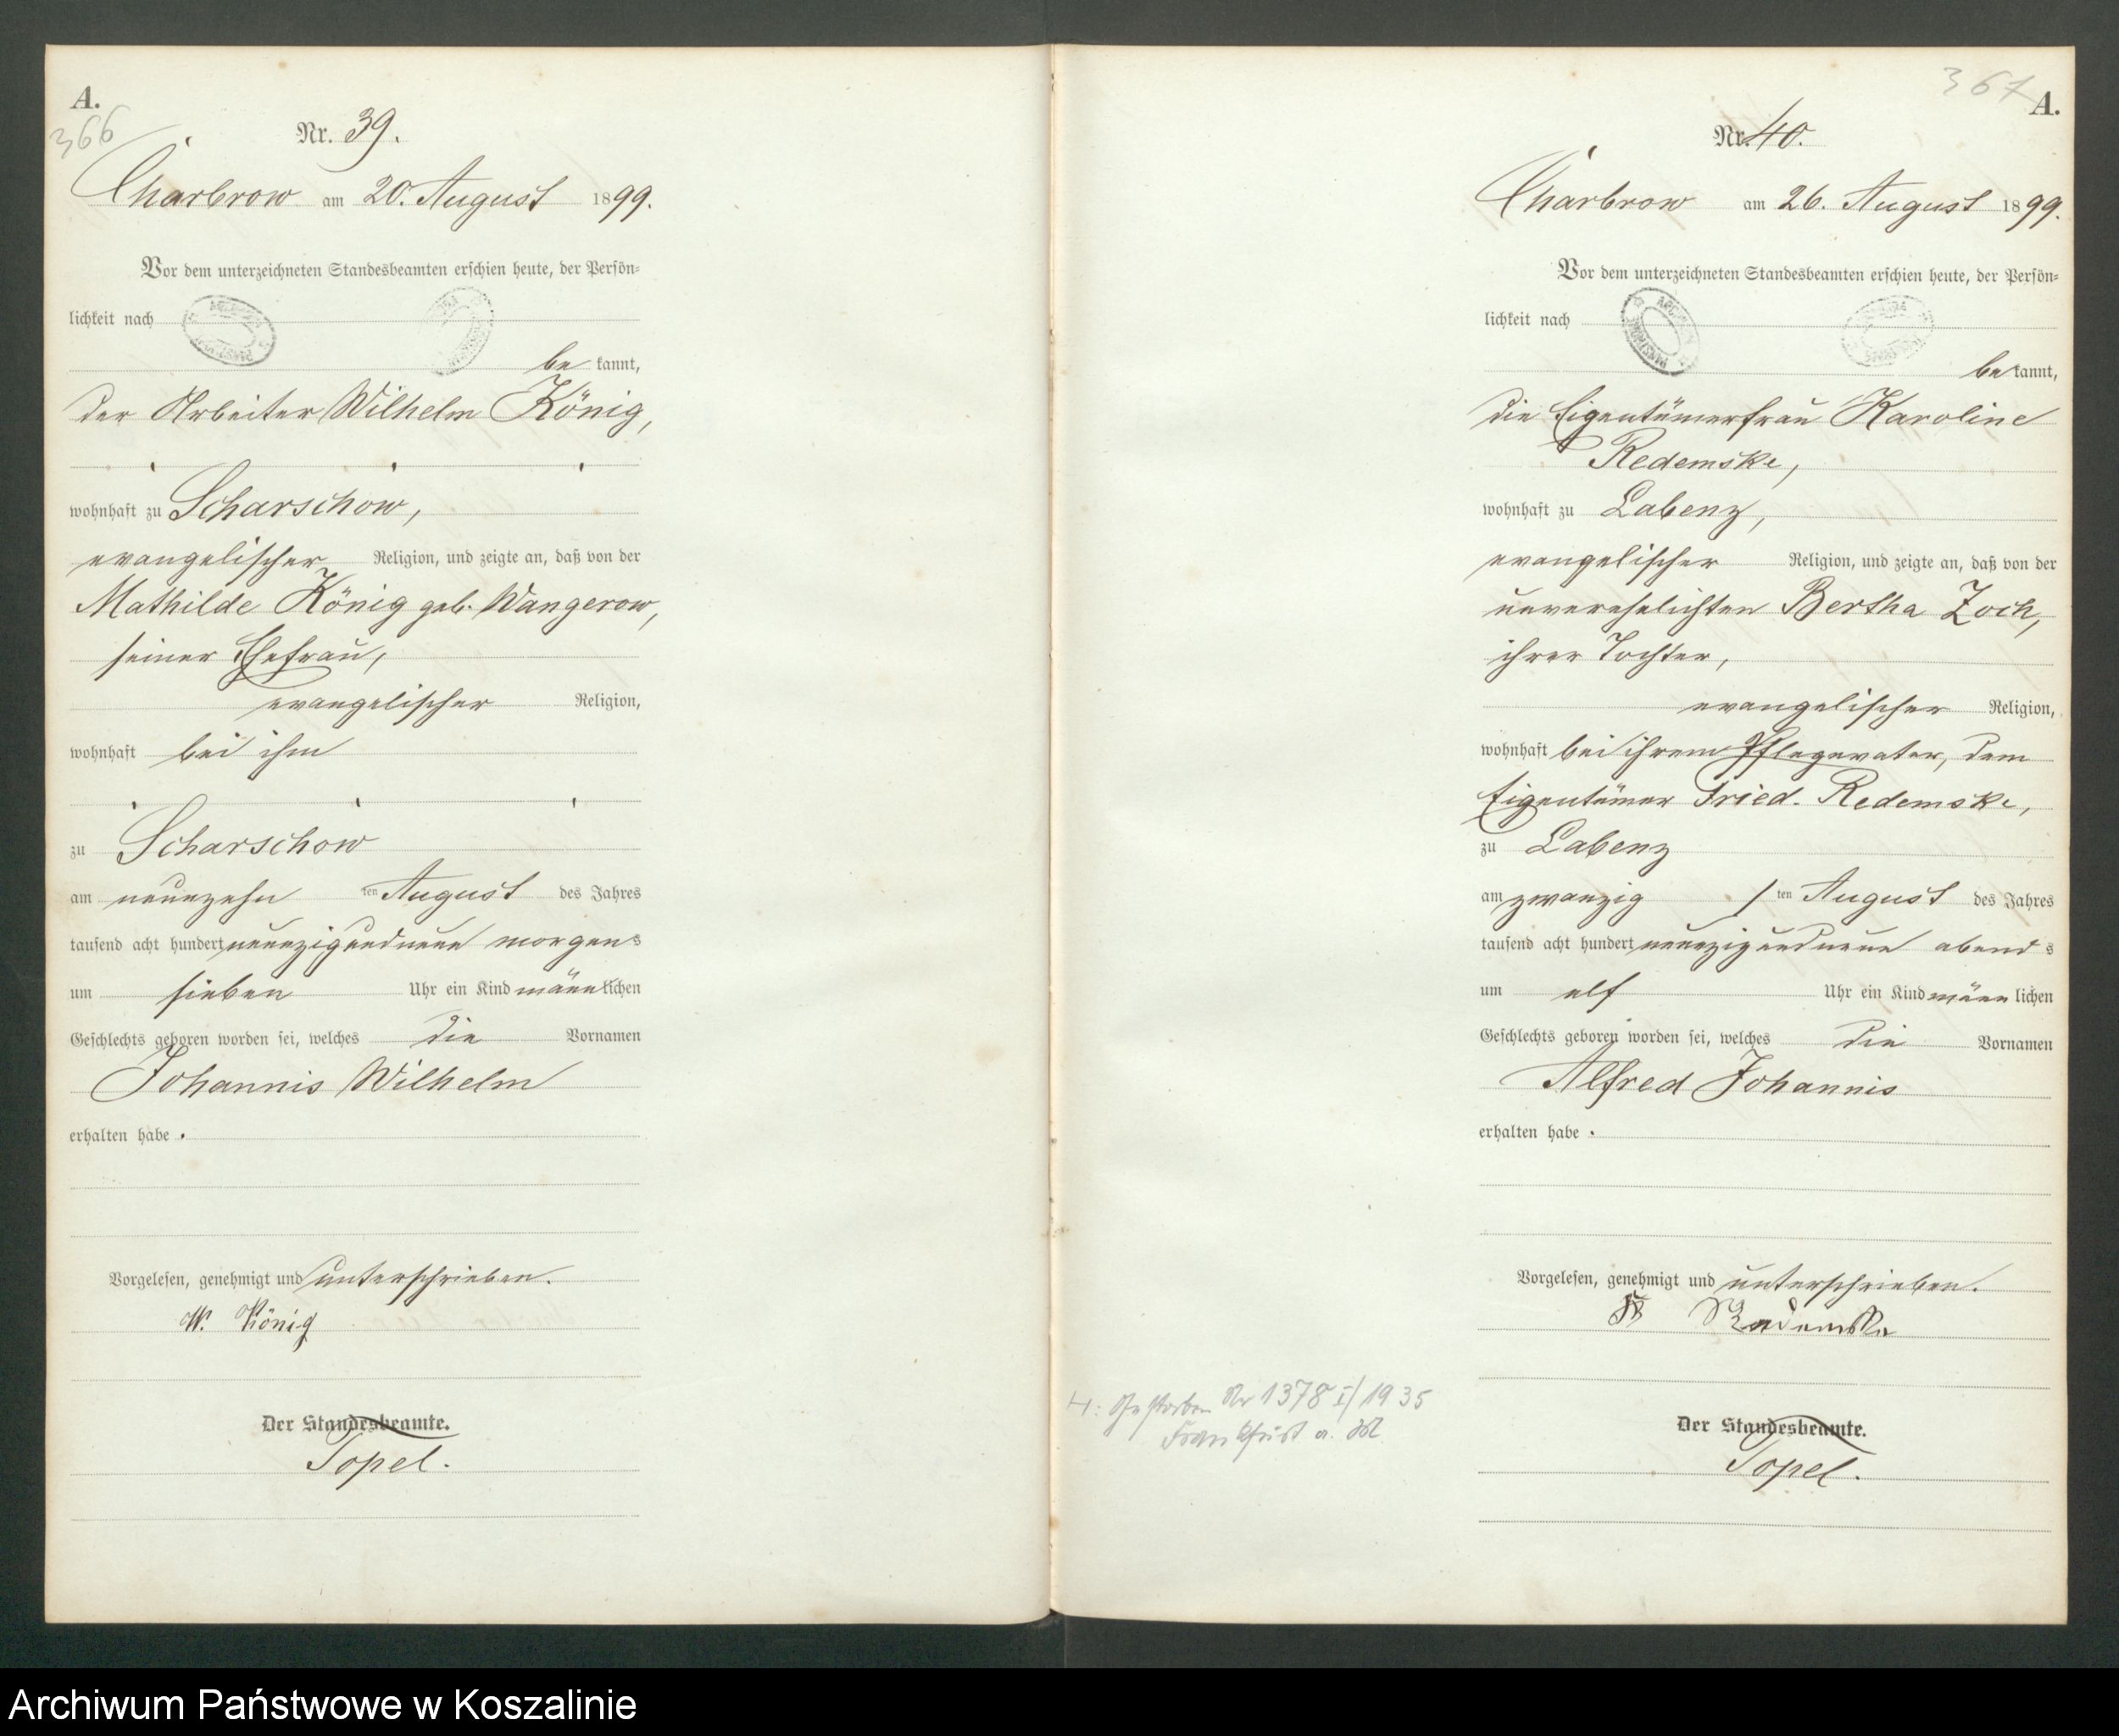 A.
366
Nr. 39.
Charbrow am 20. August 1899.
Vor dem unterzeichneten Standesbeamten erschien heute, der Persön-
lichkeit nach
be kannt,
der Arbeiter Wilhelm König,
wohnhaft zu Scharschow,
evangelischer Religion, und zeigte an, daß von der
Mathilde König geb. Wangerow,
seiner Ehefrau,
evangelischer Religion,
wohnhaft bei ihm
zu Scharschow
am neunzehn ten August des Jahres
tausend acht hundert neunzig und neun morgens
um sieben Uhr ein Kind männlichen
Geschlechts geboren worden sei, welches die Vornamen
Johannis Wilhelm
erhalten habe.
Vorgelesen, genehmigt und unterschrieben.
W. König
Der Standesbeamte.
Topel.
367
A.
Nr. 40.
Charbrow am 26. August 1899.
Vor dem unterzeichneten Standesbeamten erschien heute, der Persön-
lichkeit nach
be kannt,
die Eigentümerfrau Karoline
Redemske,
wohnhaft zu Labenz,
evangelischer Religion, und zeigte an, daß von der
unverehelichten Bertha Zoch,
ihrer Tochter,
evangelischer Religion,
wohnhaft bei ihrem Pflegevater, dem
Eigentümer Fried. Redemske,
zu Labenz
am zwanzig ten August des Jahres
tausend acht hundert neunzig und neun abends
um elf Uhr ein Kind männlichen
Geschlechts geboren worden sei, welches die Vornamen
Alfred Johannis
erhalten habe.
Vorgelesen, genehmigt und unterschrieben.
Redemske
Der Standesbeamte.
Topel.
Gestorben Nr 1378 I/1935
Frankfurt a. M
Archiwum Państwowe w Koszalinie